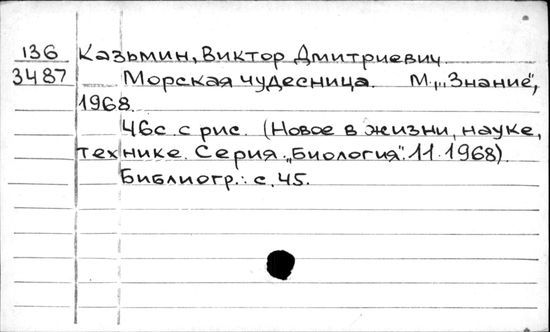 136 Казьмин, Виктор Дмитриевич
3487 Морская чудесница. М., "Знание",
1968.
46с. с рис. (Новое в жизни, науке,
технике. Серия "Биология". 11. 1968).
Библиогр.: с. 45.